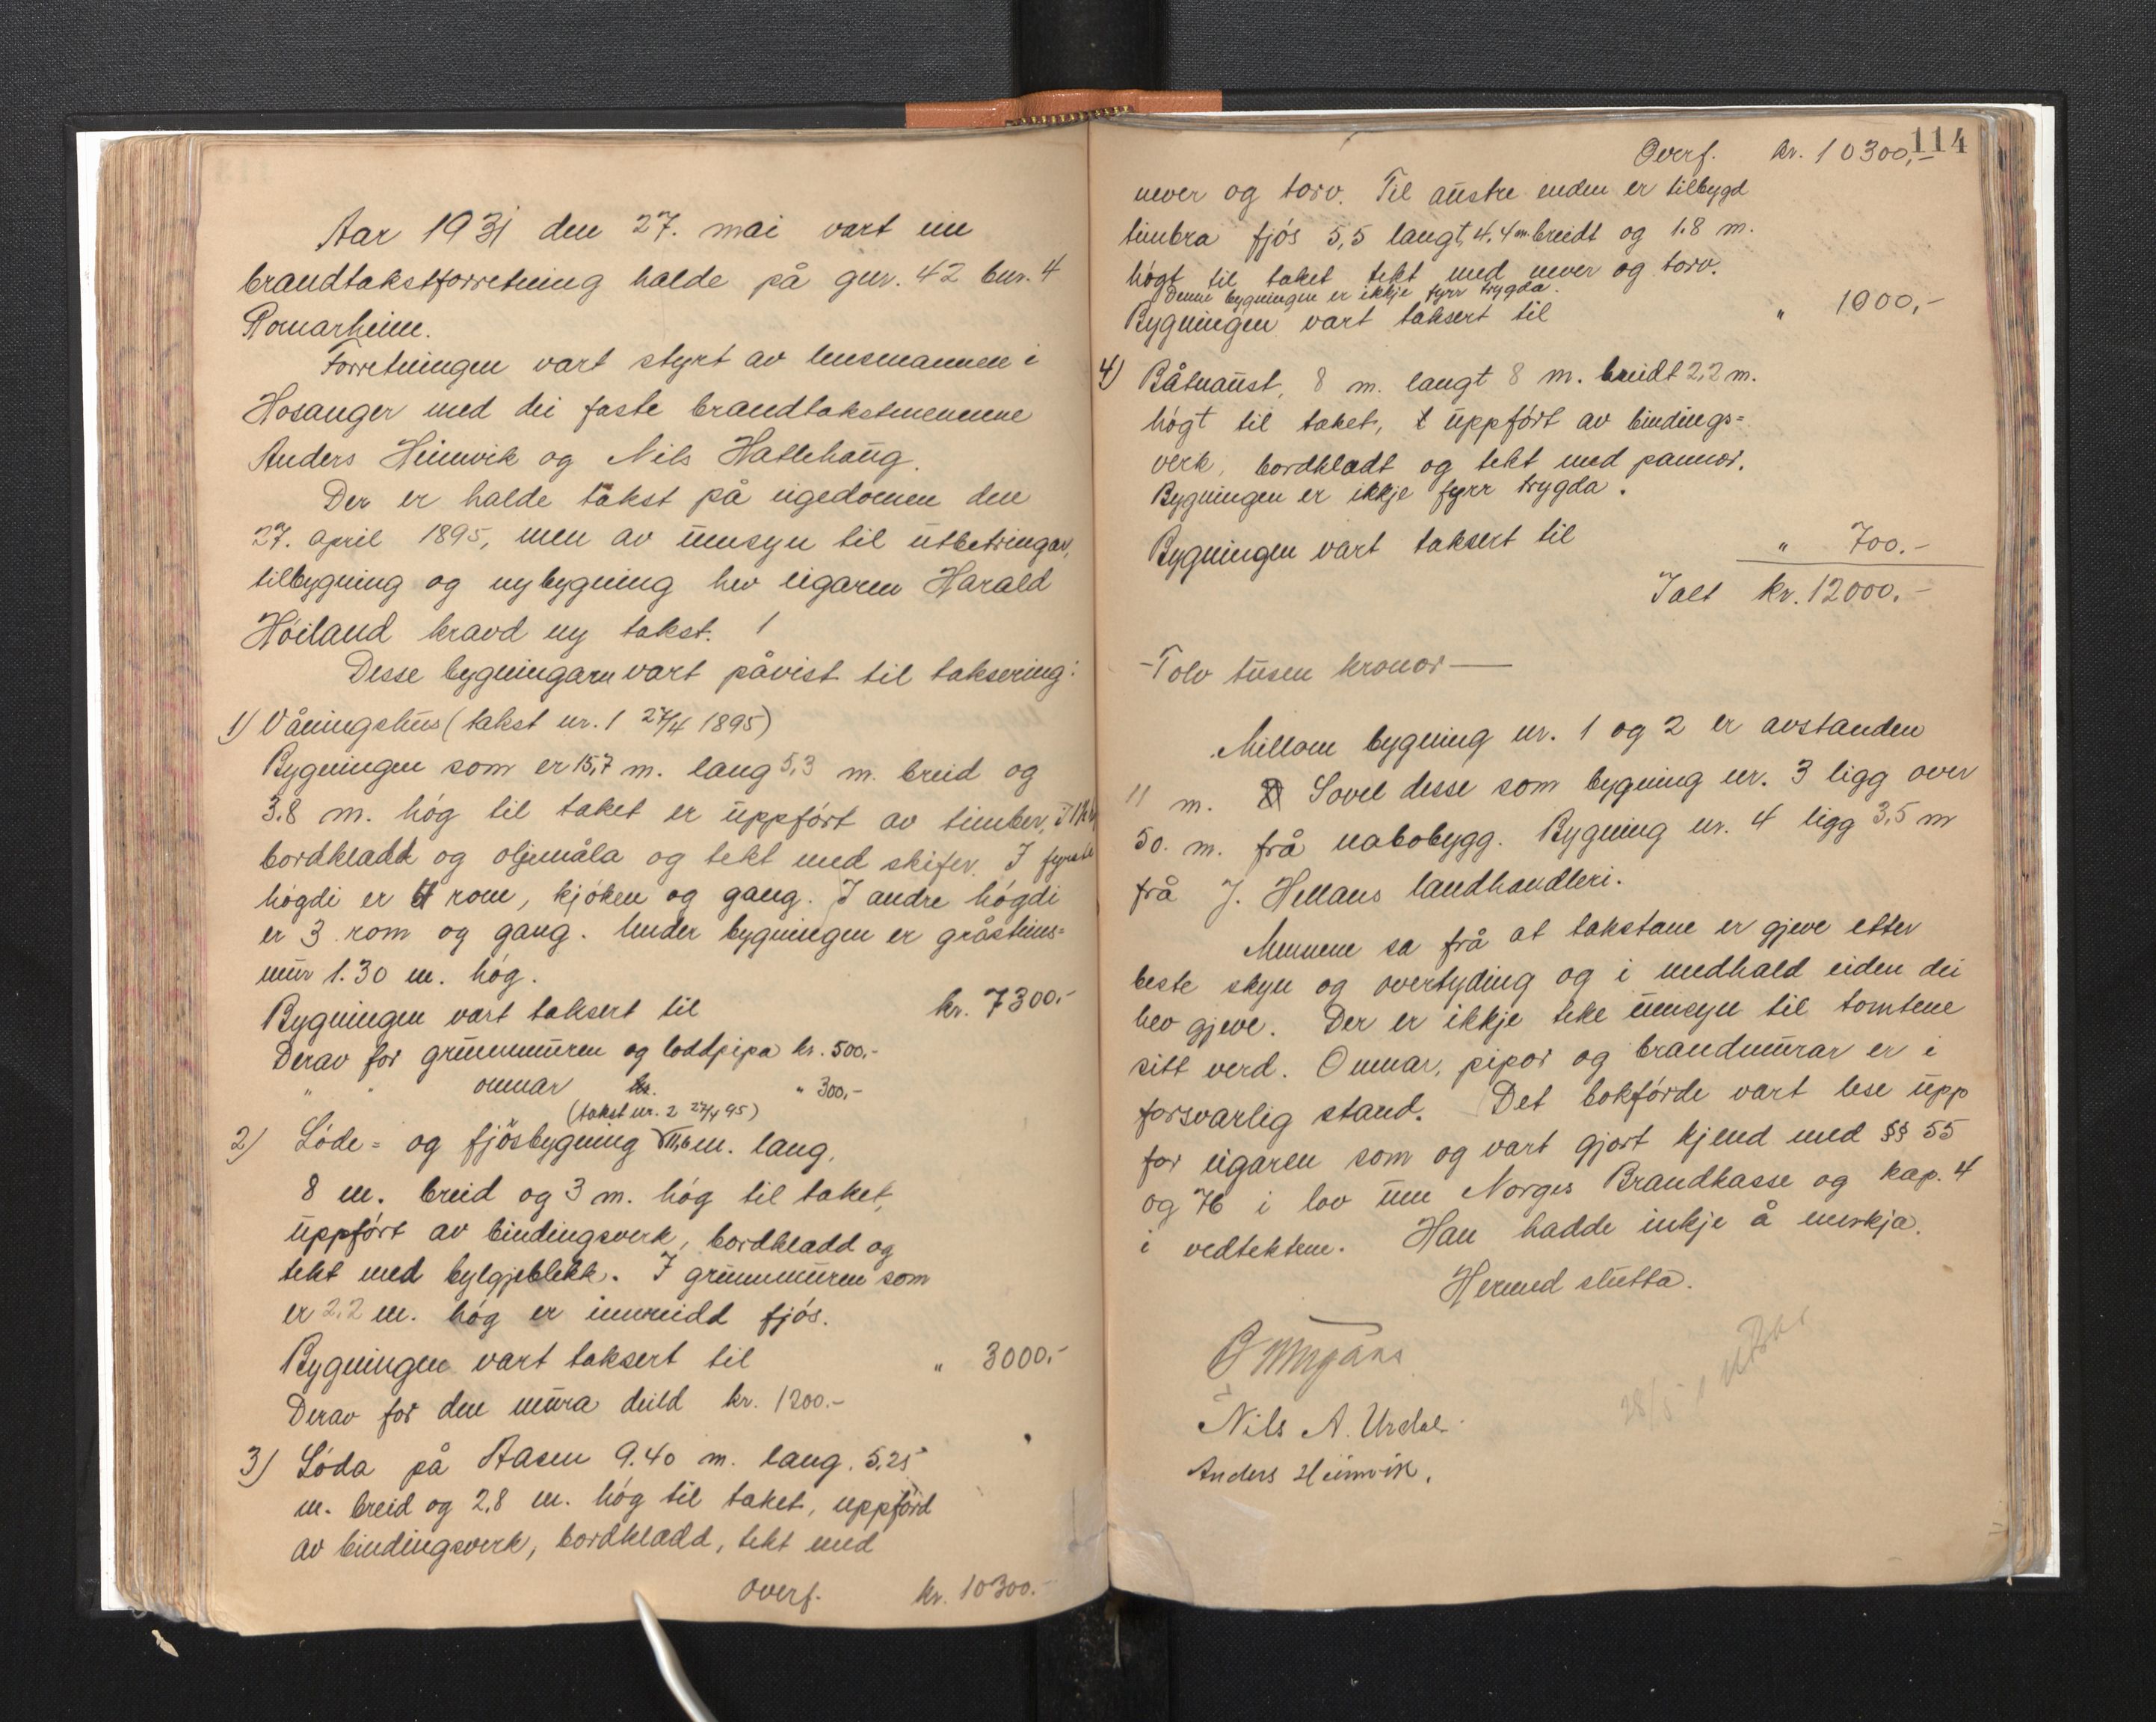 Aar 1931 den 27. mai vart ein
brandtakstforretning halde på gnr. 42 bnr. 4
Romarheim.
Forretningen vart styrt av lensmannen i
Hosanger med dei faste brandtakstmennene
Anders Heimvik og Nils Hatlehaug.
Der er halde takst på eigedomen den
27. april 1895, men av umsyn til utbetringar,
tilbygning og nybygning hev eigaren Harald
Høiland kravd ny takst.
Desse bygningarn vart påvist til taksering:
1) Våningshus (takst nr. 1 27/4 1895)
Bygningen som er 15,7 m. lang 5,3 m. breid og
3.8 m. høg til taket er uppført av timber,
bordkladd og oljemåla og tekt med skifer. I fyrste
høgdi er 4 rom, kjøken og gang. I andre høgdi
er 3 rom og gang. Under bygningen er gråsteins-
mur 1.30 m. høg.
Bygningen vart taksert til kr. 7300.-
Derav for grunnmuren og loddpipa kr. 500,-
" " omnar " 300,-
(takst nr. 2 27/4 95)
2) Løde- og fjøsbygning 11,6 m. lang,
8 m. breid og 3 m. høg til taket,
uppført av bindingsverk, bordkladd og
tekt med bylgjeblekk. I grunnmuren som
er 2.2 m. høg er innreidd fjøs.
Bygningen vart taksert til " 3000.-
Derav for den mura deild kr. 1200.-
3) Løda på Aasen 9.40 m. lang. 5.25
m. breid og 2,8 m. høg til taket, uppførd
av bindingsverk, bordkladd, tekt med
Overf. kr. 10300.-
114
Overf. kr. 10300,-
never og torv. Til austre enden er tilbygd
timbra fjøs 5,5 langt, 4,4 m. breidt og 1.8 m.
høgt til taket tekt med never og torv.
Denne bygningen er ikkje fyrr trygda.
Bygningen vart taksert til " 1000,-
4) Båtnaust, 8 m. langt 8 m. breidt 2,2 m.
høgt til taket, uppført av bindings-
verk, bordkladt og tekt med pannor.
Bygningen er ikkje fyrr trygda.
Bygningen vart taksert til " 700.-
Ialt kr. 12000.-
- Tolv tusen kronor -
Millom bygning nr. 1 og 2 er avstanden
11 m. Sovel desse som bygning nr. 3 ligg over
50. m. frå nabobygg. Bygning nr. 4 ligg 3,5 m
frå J. Hellans landhandleri.
Mennene sa frå at takstane er gjeve etter
beste skyn og overtyding og i medhald eiden dei
hev gjeve. Der er ikkje teke umsyn til tomtene
sitt verd. Omnar, pipor og brandmurar er i
forsvarlig stand. Det bokførde vart lese upp
for eigaren som og vart gjort kjend med §§ 55
og 76 i lov um Norges Brandkasse og kap. 4
i vedtektene. Han hadde inkje å merkja.
Hermed slutta.
Nils A. Urdal.
Anders Heimvik.
28/5